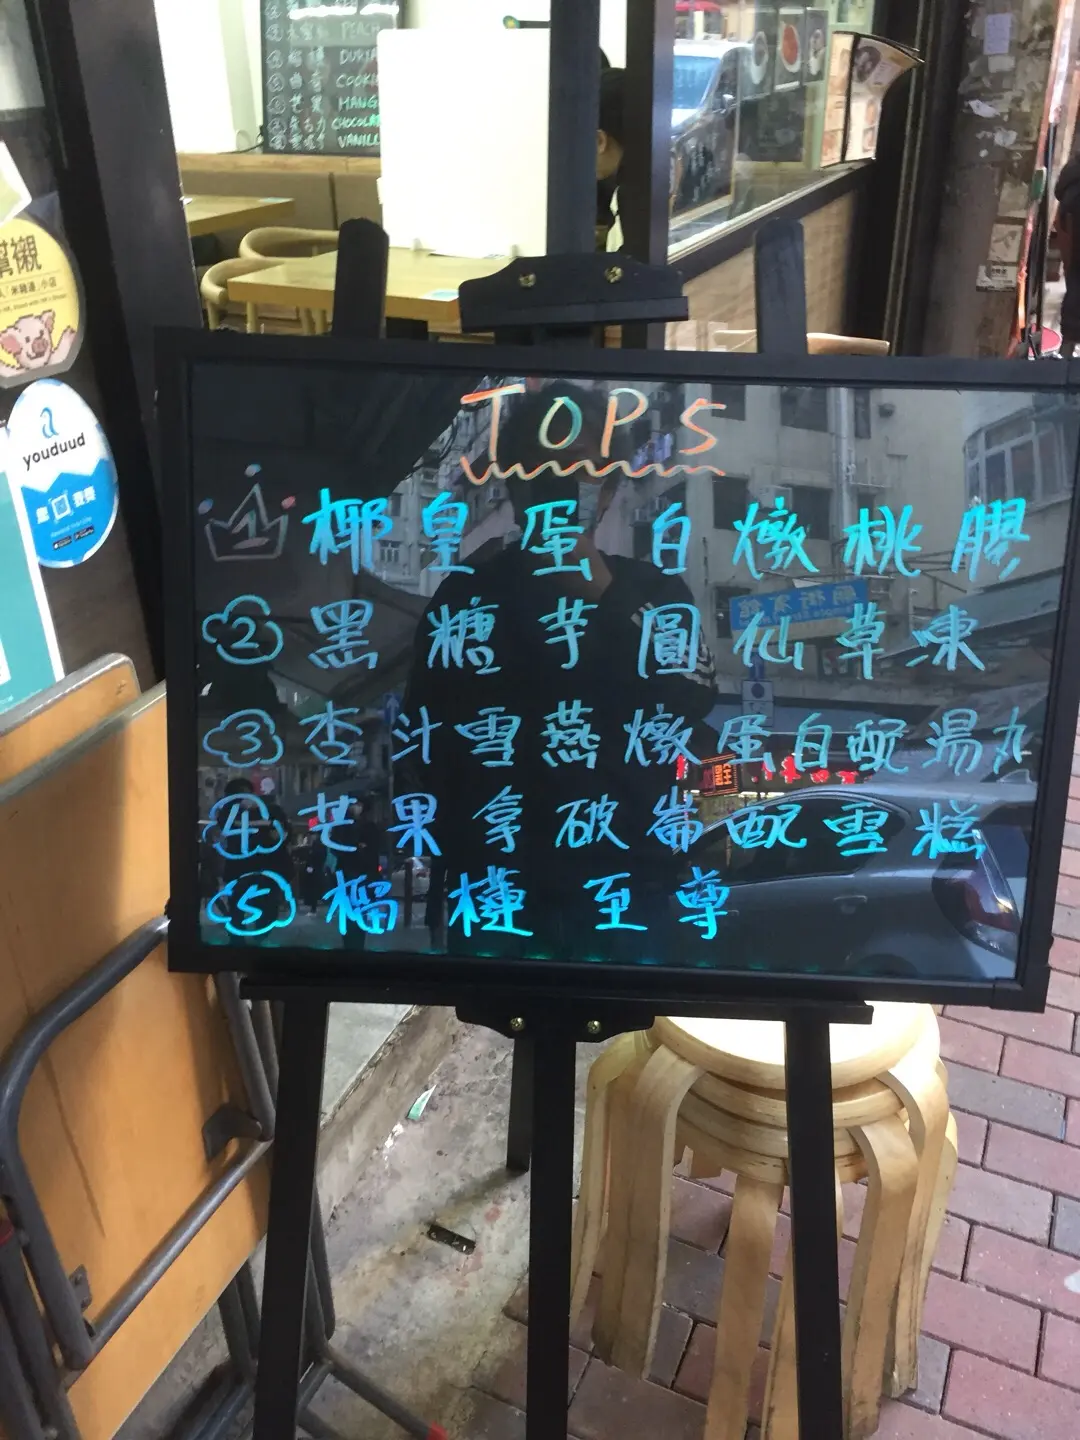 PEACH
COOKI
MANG
CHOCOLA
VANILL
youduud
TOP 5
1 椰皇蛋白燉桃膠
2 黑糖芋圓仙草凍
3 杏汁雪燕燉蛋白配湯丸
4 芒果拿破崙配雪糕
5 榴槤至尊